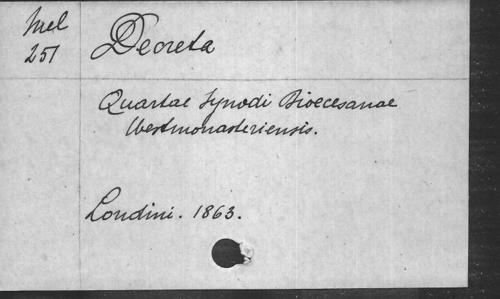 Mel
251
Decreta
Quartae Synodi Dioecesanae
Westmonasteriensis.
Londini. 1863.